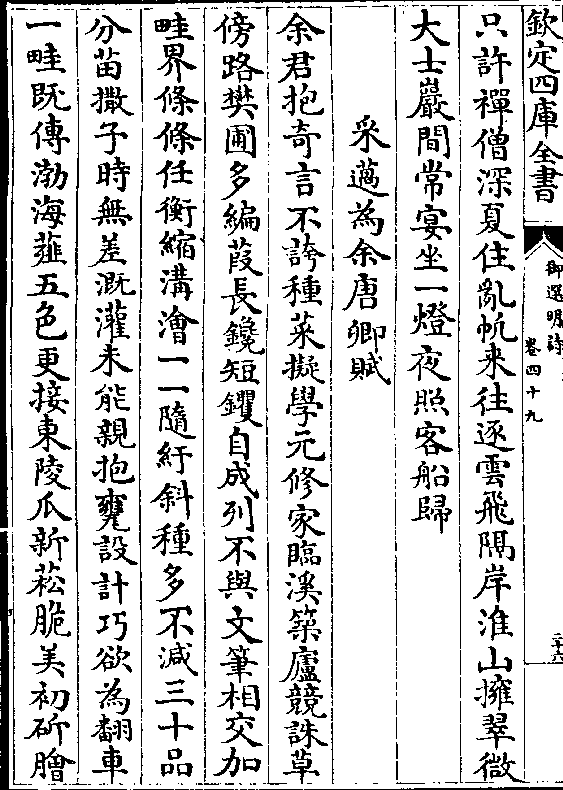 欽定四庫全書
御選明詩
卷四十九
二十六
只許禪僧深夏住亂帆来往逐雲飛隔岸淮山擁翠微
大士巖間常宴坐一燈夜照客船歸
采薖為余唐卿賦
余君抱奇言不誇種菜擬學元修家臨溪築廬競誅草
傍路樊圃多編葭長鑱短钁自成列不與文筆相交加
畦界條條任衡縮溝澮一一隨紆斜種多不減三十品
分苗撒子時無差溉灌未能親抱甕設計巧欲為翻車
一畦既傳渤海薤五色更接東陵瓜新菘脆美初斫膾